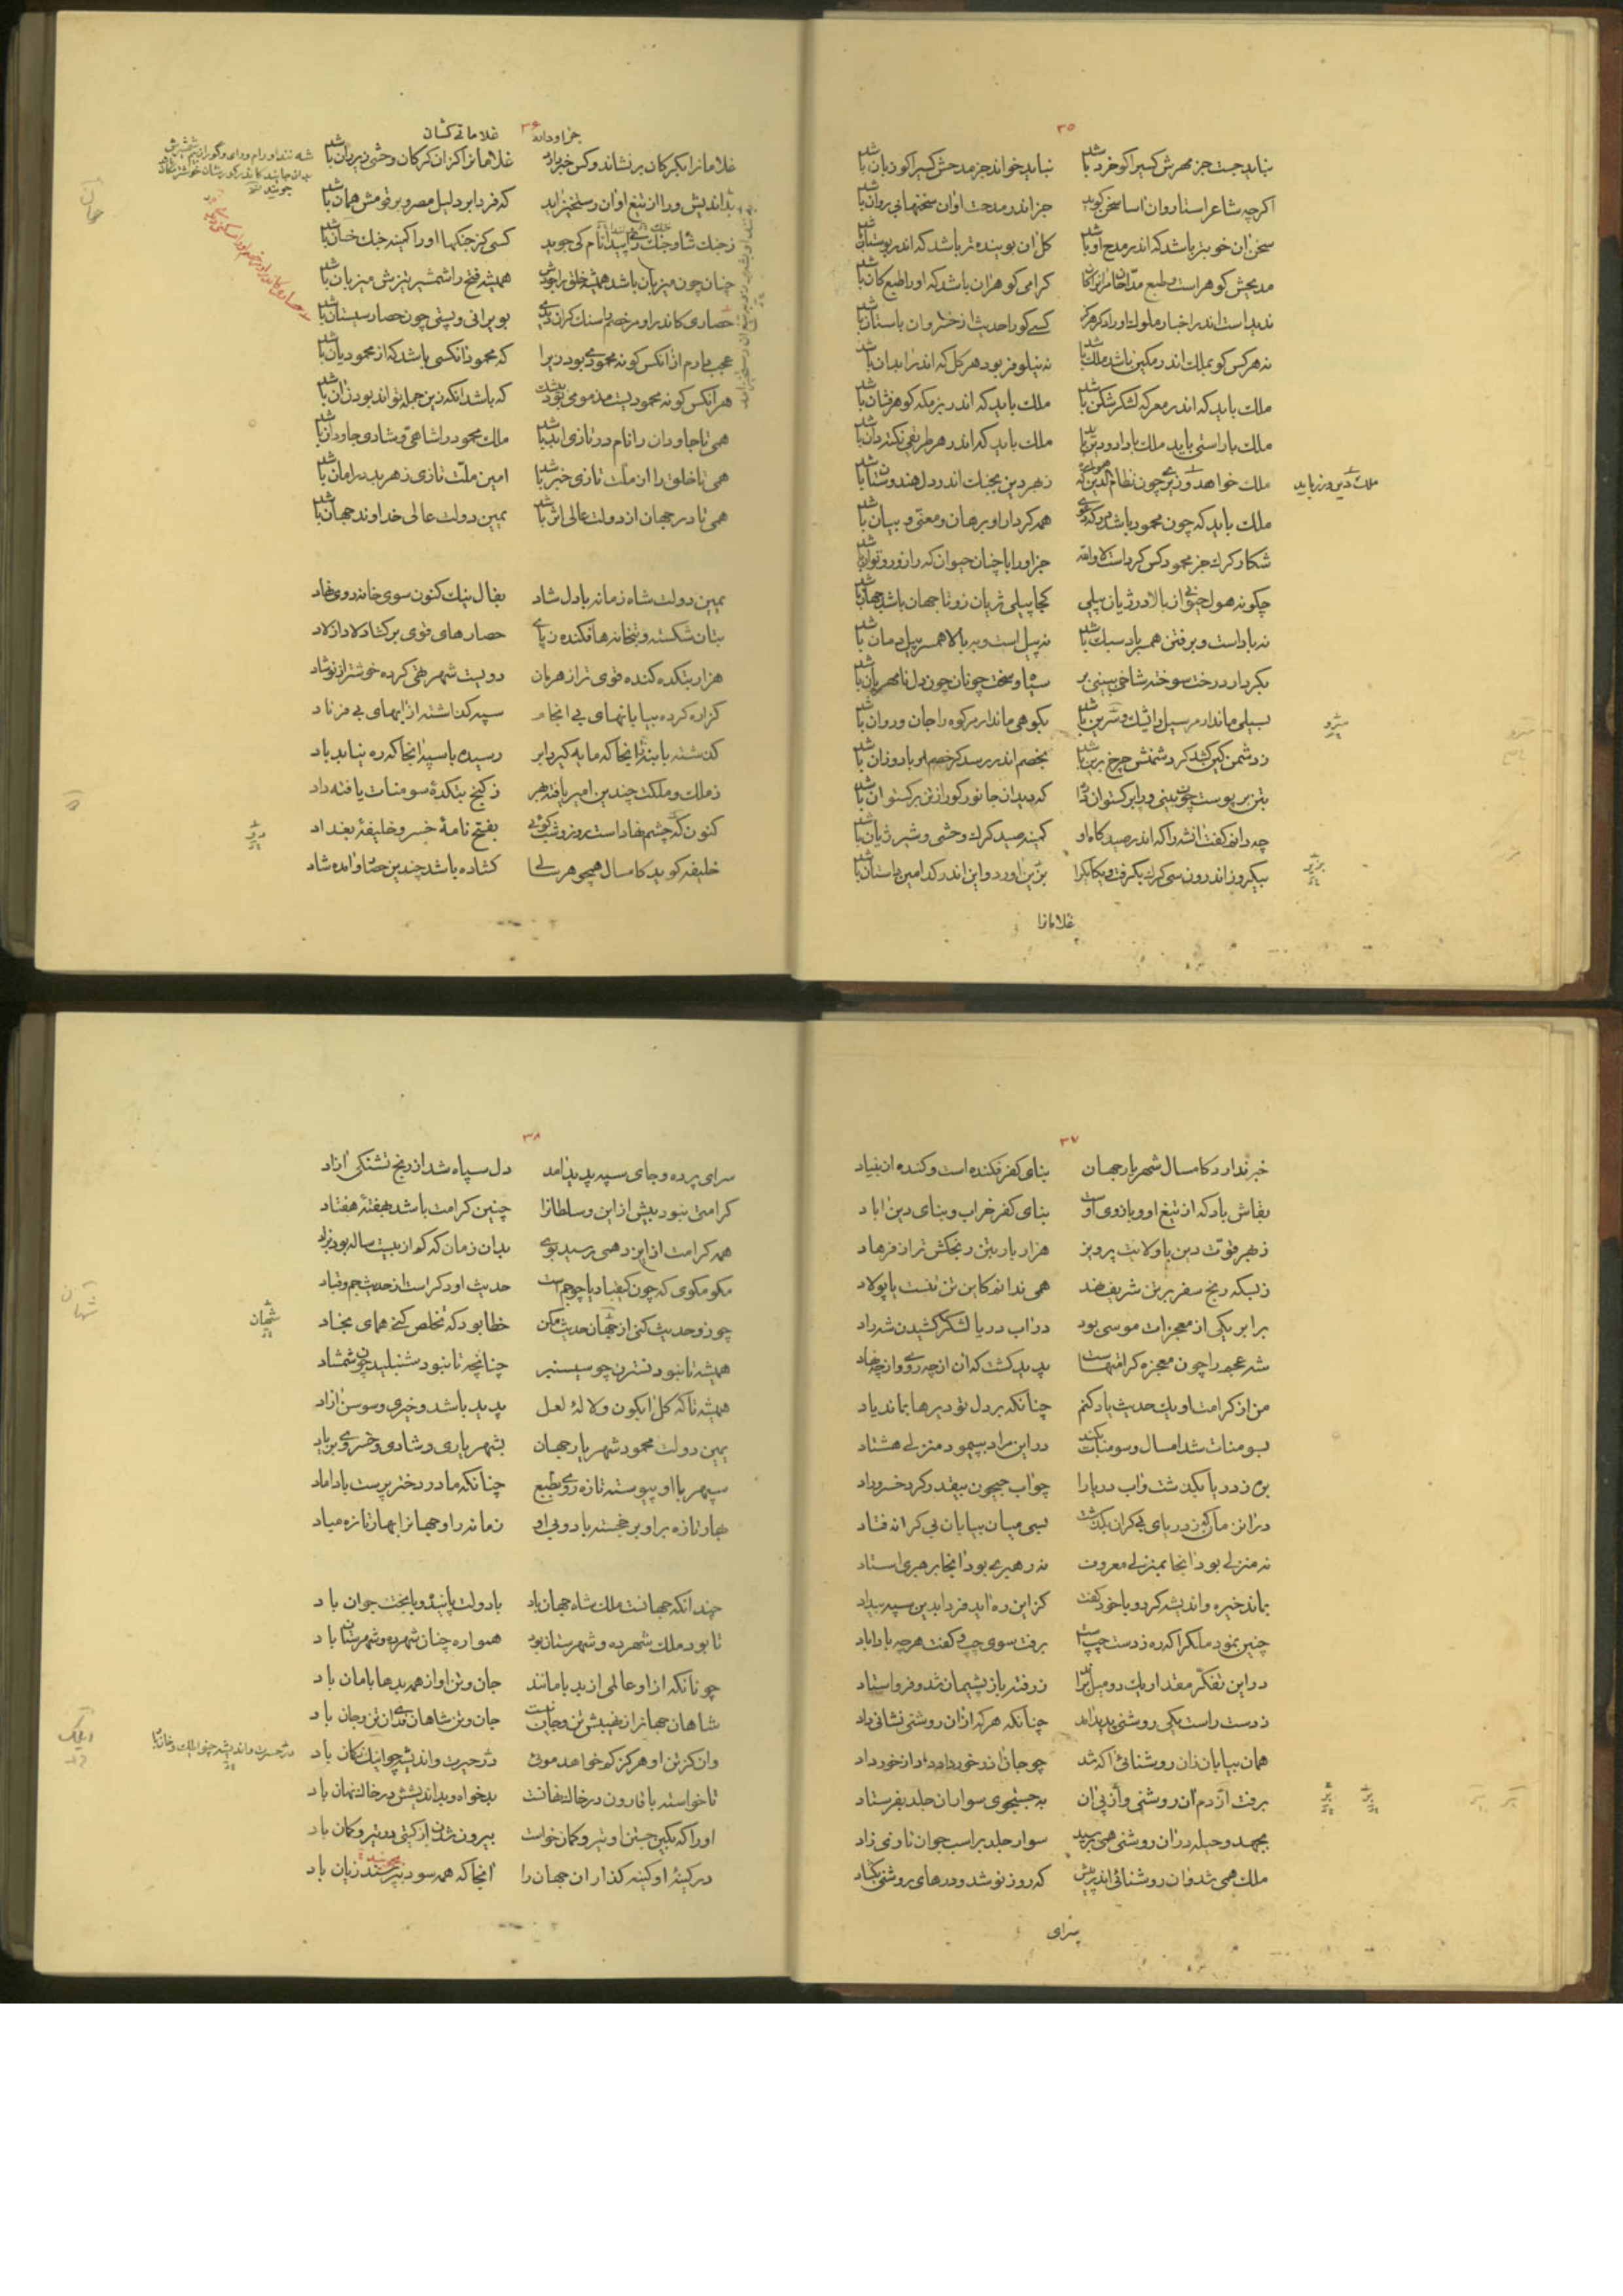 ۳۵
نباید جست جز مهرش کسیرا کو خرد باشد نباید خواند جز مدحش کسیرا کو زبان باشد
اگرچه شاعر استاد روان آسا سخن گوید جز اندر مدحت او آن سخنهایی روان باشد
سخن آن خوبتر باشد که اندر مدح او باشد گل آن بوینده تر باشد که اندر بوستان باشد
مدیحش گوهر است و طبع مدّاحان مر آنرا کان گرامی گوهر آن باشد که او را طبع کان باشد
ندیدست اندر اخبار ملوک او را دگر هرگز کسی کو را حدیث از خسروان باستان باشد
نه هرکس کو بملک اندر مکین باشد ملک باشد نه نیلوفر بود هر گل که اندر آبدان باشد
ملک باید که اندر معرکه لشکرشکن باشد ملک باید که اندر بزمگه گوهرفشان باشد
ملک با راستی باید ملک با داد و دین باید ملک باید که اندر هر طریقی نکته دان باشد
ملک خواهد وزیری چون نظام الدین که همواره ز بهر دین بجنگ اندر دل هندوستان باشد
ملک دین ورز باید
ملک باید که چون محمود باشد همه کردار او برهان و معنی و بیان باشد
شکار کرگ جز محمود کس کردست لا والله جز او را با چنان حیوان که را زور و توان باشد
چگونه هول حیوانی ز بالا و ژیان پیلی کجا پیلی ژیان زو تا جهان باشد جهان باشد
نه باد است و برفتن همبر باد سبک باشد نه پیل است و ببالا همسر پیل دمان باشد
بکردار درخت سوخته شاخی ببینی بر سیاه و سخت چونان چون دل نامهربان باشد
بسیلی ماند ار مر سیل را نیش و سرین باشد بکوهی ماند ار مر کوه را جان و روان باشد
ز دشمن کین کشد گر دشمنش چرخ برین باشد بخصم اندر رسد گر خصم او باد وزان باشد
بتن بر پوست چون بینی ورا برگستوان که دید آن جانور کو را ز تن برگستوان باشد
چه دانم گفت آنشه را که اندر صیدگاه او کمینه صید کرگ وحشی و شیر ژیان باشد
بیکروز اندرون سی کرگ بگرفت و یکایک را بزین آورد و این اندر کدامین باستان باشد
غلامانرا
۳۶
غلامانرا بکرگان بر نشاند و کس جز او دارد غلامانرا کزان کرگان وحشی زیر ران باشد
بداندیش ورا از تیغ او آن رستخیز آید که فردا بر دلیل مصر و بر قومش همان باشد
کسی کز جنگها او را کمینه جنگ خان باشد
چنان چون میزبان باشد همیشه خلق را جودش همیشه فتح را شمشیر تیزش میزبان باشد
حصاری کاندر او مر خصم را سنگ گران بویرانی و پستی چون حصار سیستان باشد
عجب دارم از آنکس کو نه محمودی بود زیرا که محمود آنکسی باشد که از محمودیان باشد
هر آنکس کو نه محمودیست مذمومی بود بیشک که باشد آنکه زین جمله تواند بود زان باشد
همی تا جاودان را نام در تازی ابد باشد ملک محمود را شاهی و شادی جاودان باشد
همی تا خلق را از ملّت تازی خبر باشد امین ملّت تازی ز هر بد در امان باشد
همی تا در جهان از دولت عالی اثر باشد یمین دولت عالی خداوند جهان باشد
یمین دولت شاه زمانه با دل شاد بفال نیک کنون سوی خانه روی نهاد
بتان شکسته و بتخانه ها فکنده ز پای حصارهای قوی برگشاد لاد از لاد
هزار بتکده کنده قوی تر از هرمان دویست شهر تهی کرده خوشتر از نوشاد
گزاره کرده بیابانهای بی انجام سپه گذاشته از آبهای بی فرناد
گذشته با بنه زآنجا که مایه گیرد ابر رسیده با سپه آنجا که ره نیابد باد
ز ملک و ملکت چندین امیر یافته بهر ز گنج بتکدهٔ سومنات یافته داد
کنون که چشم نهادست روز و شب گوئی بفتح نامهٔ خسرو خلیفهٔ بغداد
خلیفه گوید کامسال همچو هر سالی گشاده باشد چندین حصار و آمده شاد
۳۷
خبر ندارد کامسال شهریار جهان بنای کفر فکندست و کنده از بنیاد
بقاش باد که از تیغ او و بازوی اوست بنای کفر خراب و بنای دین آباد
ز بهر قوّت دین با ولایت پرویز هزار بار بتن رنجکش تر از فرهاد
ز بسکه رنج سفر بر تن شریف نهد همی ندانم کاین تن تنست یا پولاد
برابر یکی از معجزات موسی بود در آب دریا لشکر کشیدن شه راد
شه عجم را چون معجزه کرامتهاست پدید گشت که آن از چه روی و از چه نهاد
من از کرامت او یک حدیث یاد کنم چنانکه بر دل تو دیرها بماند یاد
بسومنات شد امسال و سومنات بکند در این مراد بپیمود منزلی هشتاد
بره ز دریا بگذشت و آب دریا را چو آب جیحون بیقدر کرد خسرو راد
در آن زمان کو ز دریای بی کران بگذشت پسی میان بیابان بی کرانه فتاد
نه منزلی بود آنجا بمنزلی معروف نه رهبری بود آنجا برهبری استاد
بماند خیره و اندیشه کرد و با خود گفت کز این ره آید فردا بدین سپه بیداد
چنین نمود ملک را که ره ز دست چپست برفت سوی چپ و گفت هرچه بادا باد
در این تفکر مقدار یک دو میل براند ز رفته باز پشیمان شد و فرو استاد
ز دست راست یکی روشنی پدید آمد چنانکه هرکه از آن روشنی نشانی داد
همان بیابان زان روشنائی آگه شد چو جان آذر خرداد ز آذر خرداد
برفت از دم آن روشنی و از پی آن بجستجوی سواران جلد بفرستاد
بجهد و حیله در آن روشنی همی نرسید سوار جلد بر اسب جوان تازی زاد
ملک همی شد و آن روشنائی اندر پیش که روز نو شد و درهای روشنی بگشاد
سرای
۳۸
سرای پرده و جای سپه پدید آمد دل سپاه شد از رنج تشنگی آزاد
کرامتی نبود بیش از این و سلطانرا چنین کرامت باشد بهفتهٔ هفتاد
همه کرامت از ایزد همی رسید بوی بدان زمان که کم از بیست ساله بود بزاد
مگو مگوی که چون کیقباد یا چو جمست حدیث او دگر است از حدیث جم و قباد
چو زو حدیث کنی از شهان حدیث مکن خطا بود که تخلص کنی همای بخاد
همیشه تا نبود نسترن چو سیسنبر چنانچه تا نبود شنبلید چون شمشاد
همیشه تا که گل آبگون و لالهٔ لعل پدید باشد و خیری و سوسن آزاد
یمین دولت محمود شهریار جهان بشهریاری و شادی و خسروی بزیاد
سپهر با او پیوسته تازه روی بطبع چنانکه مادر دختر پرست با داماد
بهار تازه بر او بر خجسته باد و بی او زمانه را و جهانرا بهار تازه مباد
چندانکه جهانست ملک شاه جهان باد با دولت پاینده و با بخت جوان باد
تا بود ملک شهرده و شهرستان بود همواره چنان شهرده و شهرستان باد
چونانکه از او عالمی از بد بامانند جان و تن او از همه بدها بامان باد
شاهان جهانرا ز نهیبش تن و جان نیست جان و تن شاهان فدی آن تن و جان باد
وانکز تن او هرگز کم خواهد موئی در حیرت و اندیشه چو ایلک نگران باد
در حسرت و اندیشه چو ایلک و خان باد
تا خواسته با قارون در خاک نهانست بدخواه و بداندیشش در خاک نهان باد
او را که بکین جستن او تیر و کمان خواست بیرون شدن از گیتی بی تیر و کمان باد
در کینهٔ او کینه گذاران جهان را آنجا که همه سود پرستند زیان باد